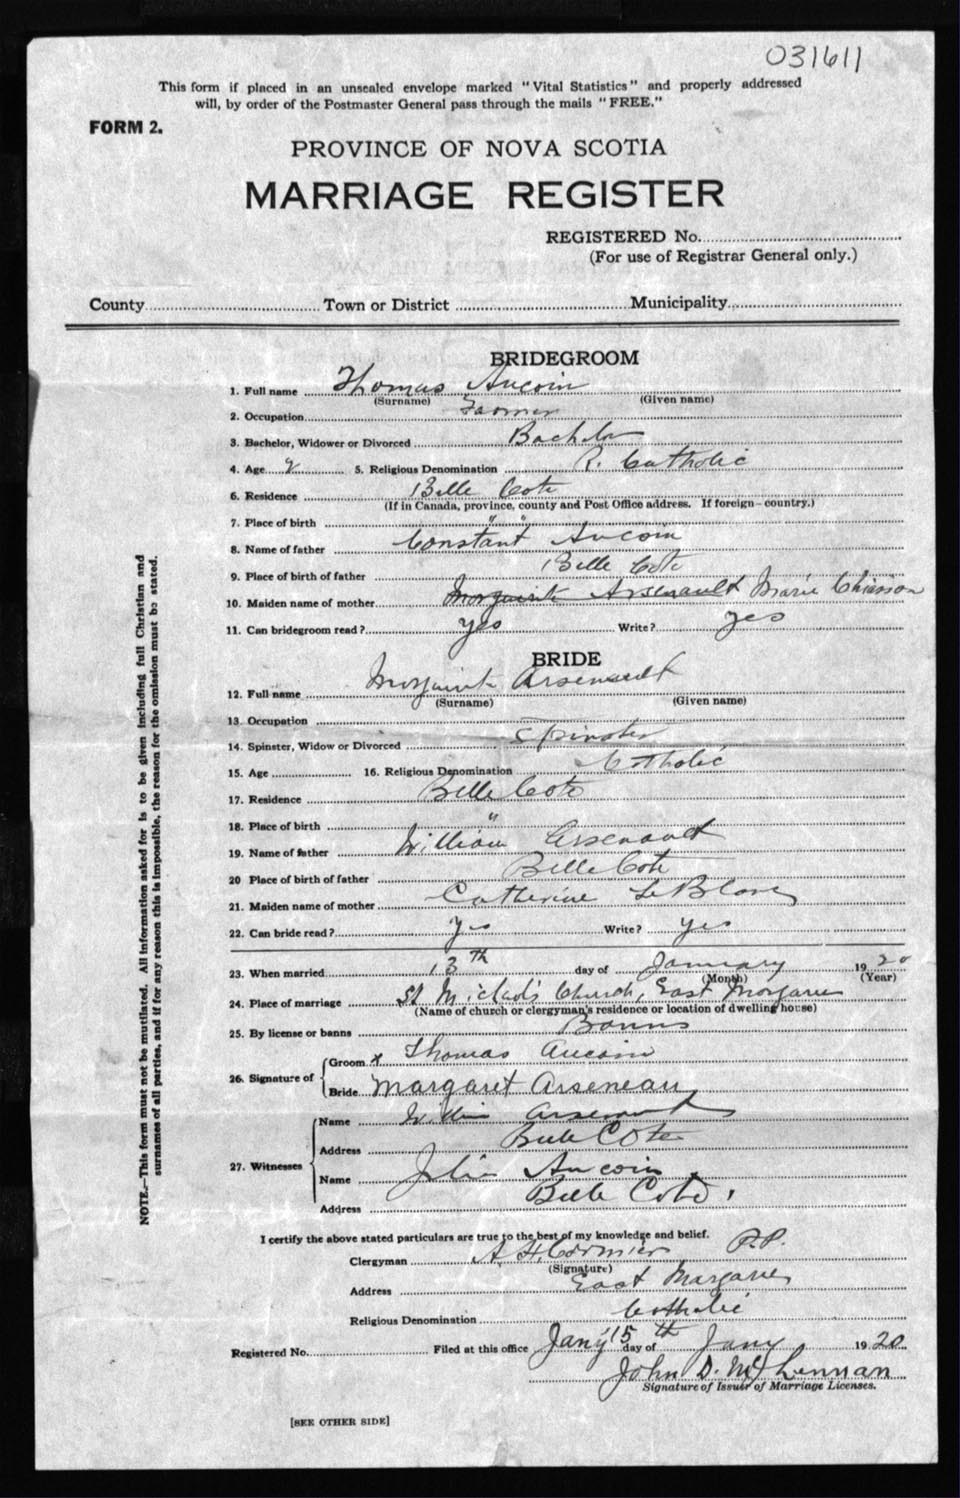 031611
This form if placed in an unsealed envelope marked "Vital Statistics" and properly addressed
will, by order of the Postmaster General pass through the mails "FREE."
FORM 2.
PROVINCE OF NOVA SCOTIA
MARRIAGE REGISTER
REGISTERED No.
(For use of Registrar General only.)
County Town or District Municipality
BRIDEGROOM
1. Full name Thomas Aucoin
(Surname) (Given name)
2. Occupation Farmer
3. Bachelor, Widower or Divorced Bachelor
4. Age 5. Religious Denomination R. Catholic
6. Residence Belle Cote
(If in Canada, province, county and Post Office address. If foreign—country.)
7. Place of birth " "
8. Name of father Constant Aucoin
9. Place of birth of father Belle Cote
10. Maiden name of mother Arsenault Marie Chiasson
11. Can bridegroom read? yes Write? yes
BRIDE
12. Full name Arsenault
(Surname) (Given name)
13. Occupation
14. Spinster, Widow or Divorced Spinster
15. Age 16. Religious Denomination Catholic
17. Residence Belle Cote
18. Place of birth "
19. Name of father William Arsenault
20 Place of birth of father Belle Cote
21. Maiden name of mother Catherine LeBlanc
22. Can bride read? yes Write? yes
23. When married 13th day of January 1920
(Month) (Year)
24. Place of marriage St Michael's Church, East Margaree
(Name of church or clergyman's residence or location of dwelling house)
25. By license or banns Banns
26. Signature of
Groom x Thomas Aucoin
Bride Margaret Arseneau
27. Witnesses
Name Arsenault
Address Belle Cote
Name Aucoin
Address Belle Cote
I certify the above stated particulars are true to the best of my knowledge and belief.
Clergyman A. H. Cormier P.P.
(Signature)
Address East Margaree
Religious Denomination Catholic
Registered No. Filed at this office Jany 15th day of Jany 1920
John D. McLennan
Signature of Issuer of Marriage Licenses.
[SEE OTHER SIDE]
NOTE.—This form must not be mutilated. All information asked for is to be given including full Christian and
surnames of all parties, and if for any reason this is impossible, the reason for the omission must be stated.